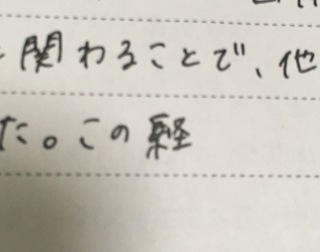 関わることで、他
た。この経